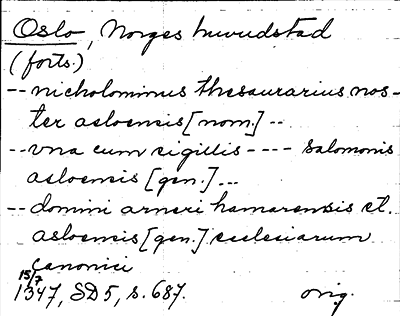 Oslo, Norges huvudstad
(forts.)
-- nicholominus thesaurarius nos-
ter asloensis [nom.] --
-- vna cum sigillis ---- salomonis
asloensis [gen.] ...
-- domini arneri hamarensis et.
asloensis [gen.] ecclesiarum
canonici
15/7
1347, SD 5, s. 687. orig.